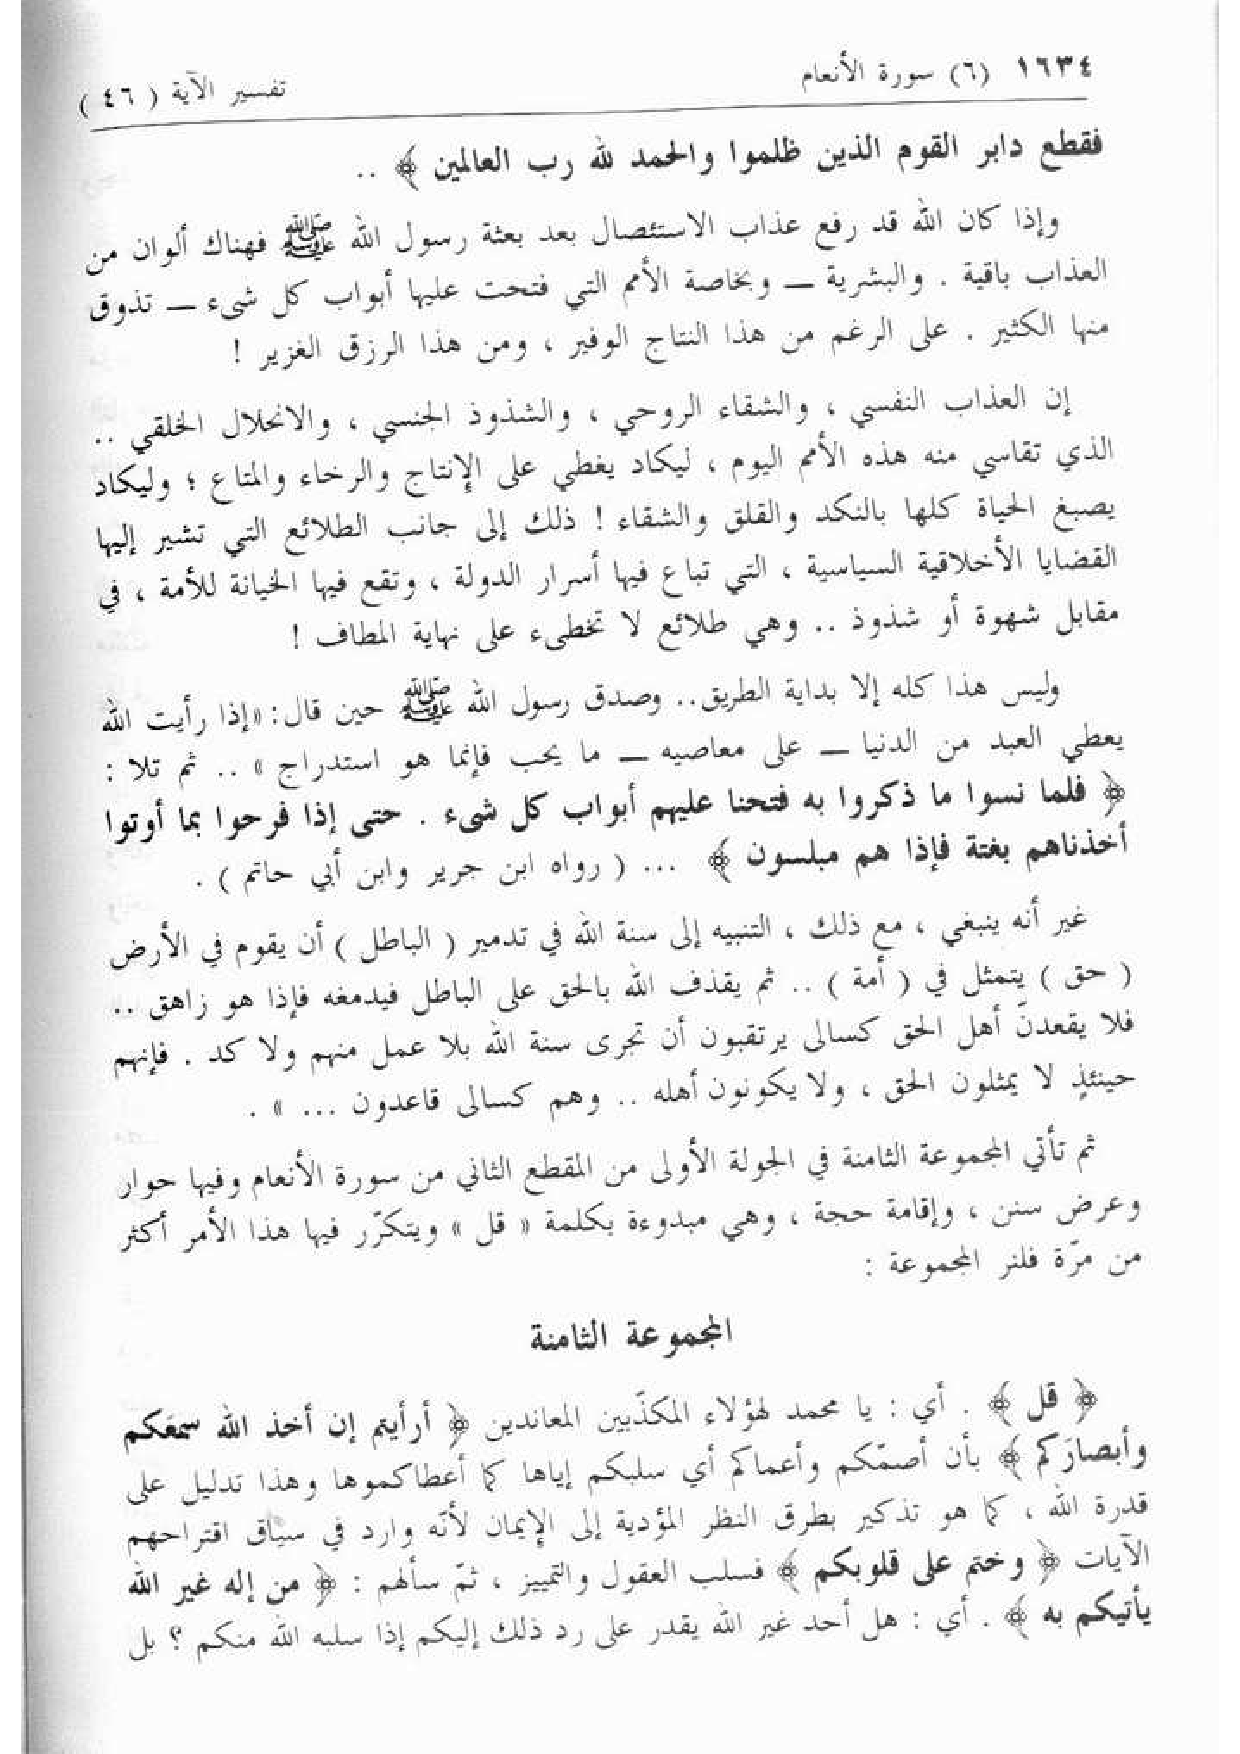 ١٦٣٤ (٦) سورة الأنعام تفسير الآية ( ٤٦ )
فقطع دابر القوم الذين ظلموا والحمد لله رب العالمين ﴾ ..
وإذا كان الله قد رفع عذاب الاستئصال بعد بعثة رسول الله ﷺ فهناك ألوان من
العذاب باقية . والبشرية ــ وبخاصة الأمم التي فتحت عليها أبواب كل شىء ــ تذوق
منها الكثير . على الرغم من هذا النتاج الوفير ، ومن هذا الرزق الغزير !
إن العذاب النفسي ، والشقاء الروحي ، والشذوذ الجنسي ، والانحلال الخلقي ..
الذي تقاسي منه هذه الأمم اليوم ، ليكاد يغطي على الإنتاج والرخاء والمتاع ؛ وليكاد
يصبغ الحياة كلها بالنكد والقلق والشقاء ! ذلك إلى جانب الطلائع التي تشير إليها
القضايا الأخلاقية السياسية ، التي تباع فيها أسرار الدولة ، وتقع فيها الخيانة للأمة ، في
مقابل شهوة أو شذوذ .. وهي طلائع لا تخطىء على نهاية المطاف !
وليس هذا كله إلا بداية الطريق.. وصدق رسول الله ﷺ حين قال: «إذا رأيت الله
يعطي العبد من الدنيا ــ على معاصيه ــ ما يحب فإنما هو استدراج » .. ثم تلا :
﴿ فلما نسوا ما ذكروا به فتحنا عليهم أبواب كل شىء . حتى إذا فرحوا بما أوتوا
أخذناهم بغتة فإذا هم مبلسون ﴾ ... ( رواه ابن جرير وابن أبي حاتم ) .
غير أنه ينبغي ، مع ذلك ، التنبيه إلى سنة الله في تدمير ( الباطل ) أن يقوم في الأرض
( حق ) يتمثل في ( أمة ) .. ثم يقذف الله بالحق على الباطل فيدمغه فإذا هو زاهق ..
فلا يقعدنّ أهل الحق كسالى يرتقبون أن تجرى سنة الله بلا عمل منهم ولا كد . فإنهم
حينئذٍ لا يمثلون الحق ، ولا يكونون أهله .. وهم كسالى قاعدون ... » .
ثم تأتي المجموعة الثامنة في الجولة الأولى من المقطع الثاني من سورة الأنعام وفيها حوار
وعرض سنن ، وإقامة حجة ، وهي مبدوءة بكلمة « قل » ويتكرّر فيها هذا الأمر أكثر
من مرّة فلنر المجموعة :
المجموعة الثامنة
﴿ قل ﴾ . أي : يا محمد لهؤلاء المكذّبين المعاندين ﴿ أرأيتم إن أخذ الله سمعَكم
وأبصارَكم ﴾ بأن أصمّكم وأعماكم أي سلبكم إياها كما أعطاكموها وهذا تدليل على
قدرة الله ، كما هو تذكير بطرق النظر المؤدية إلى الإيمان لأنّه وارد في سياق اقتراحهم
الآيات ﴿ وختم على قلوبكم ﴾ فسلب العقول والتمييز ، ثمّ سألهم : ﴿ من إله غير الله
يأتيكم به ﴾ . أي : هل أحد غير الله يقدر على رد ذلك إليكم إذا سلبه الله منكم ؟ بل